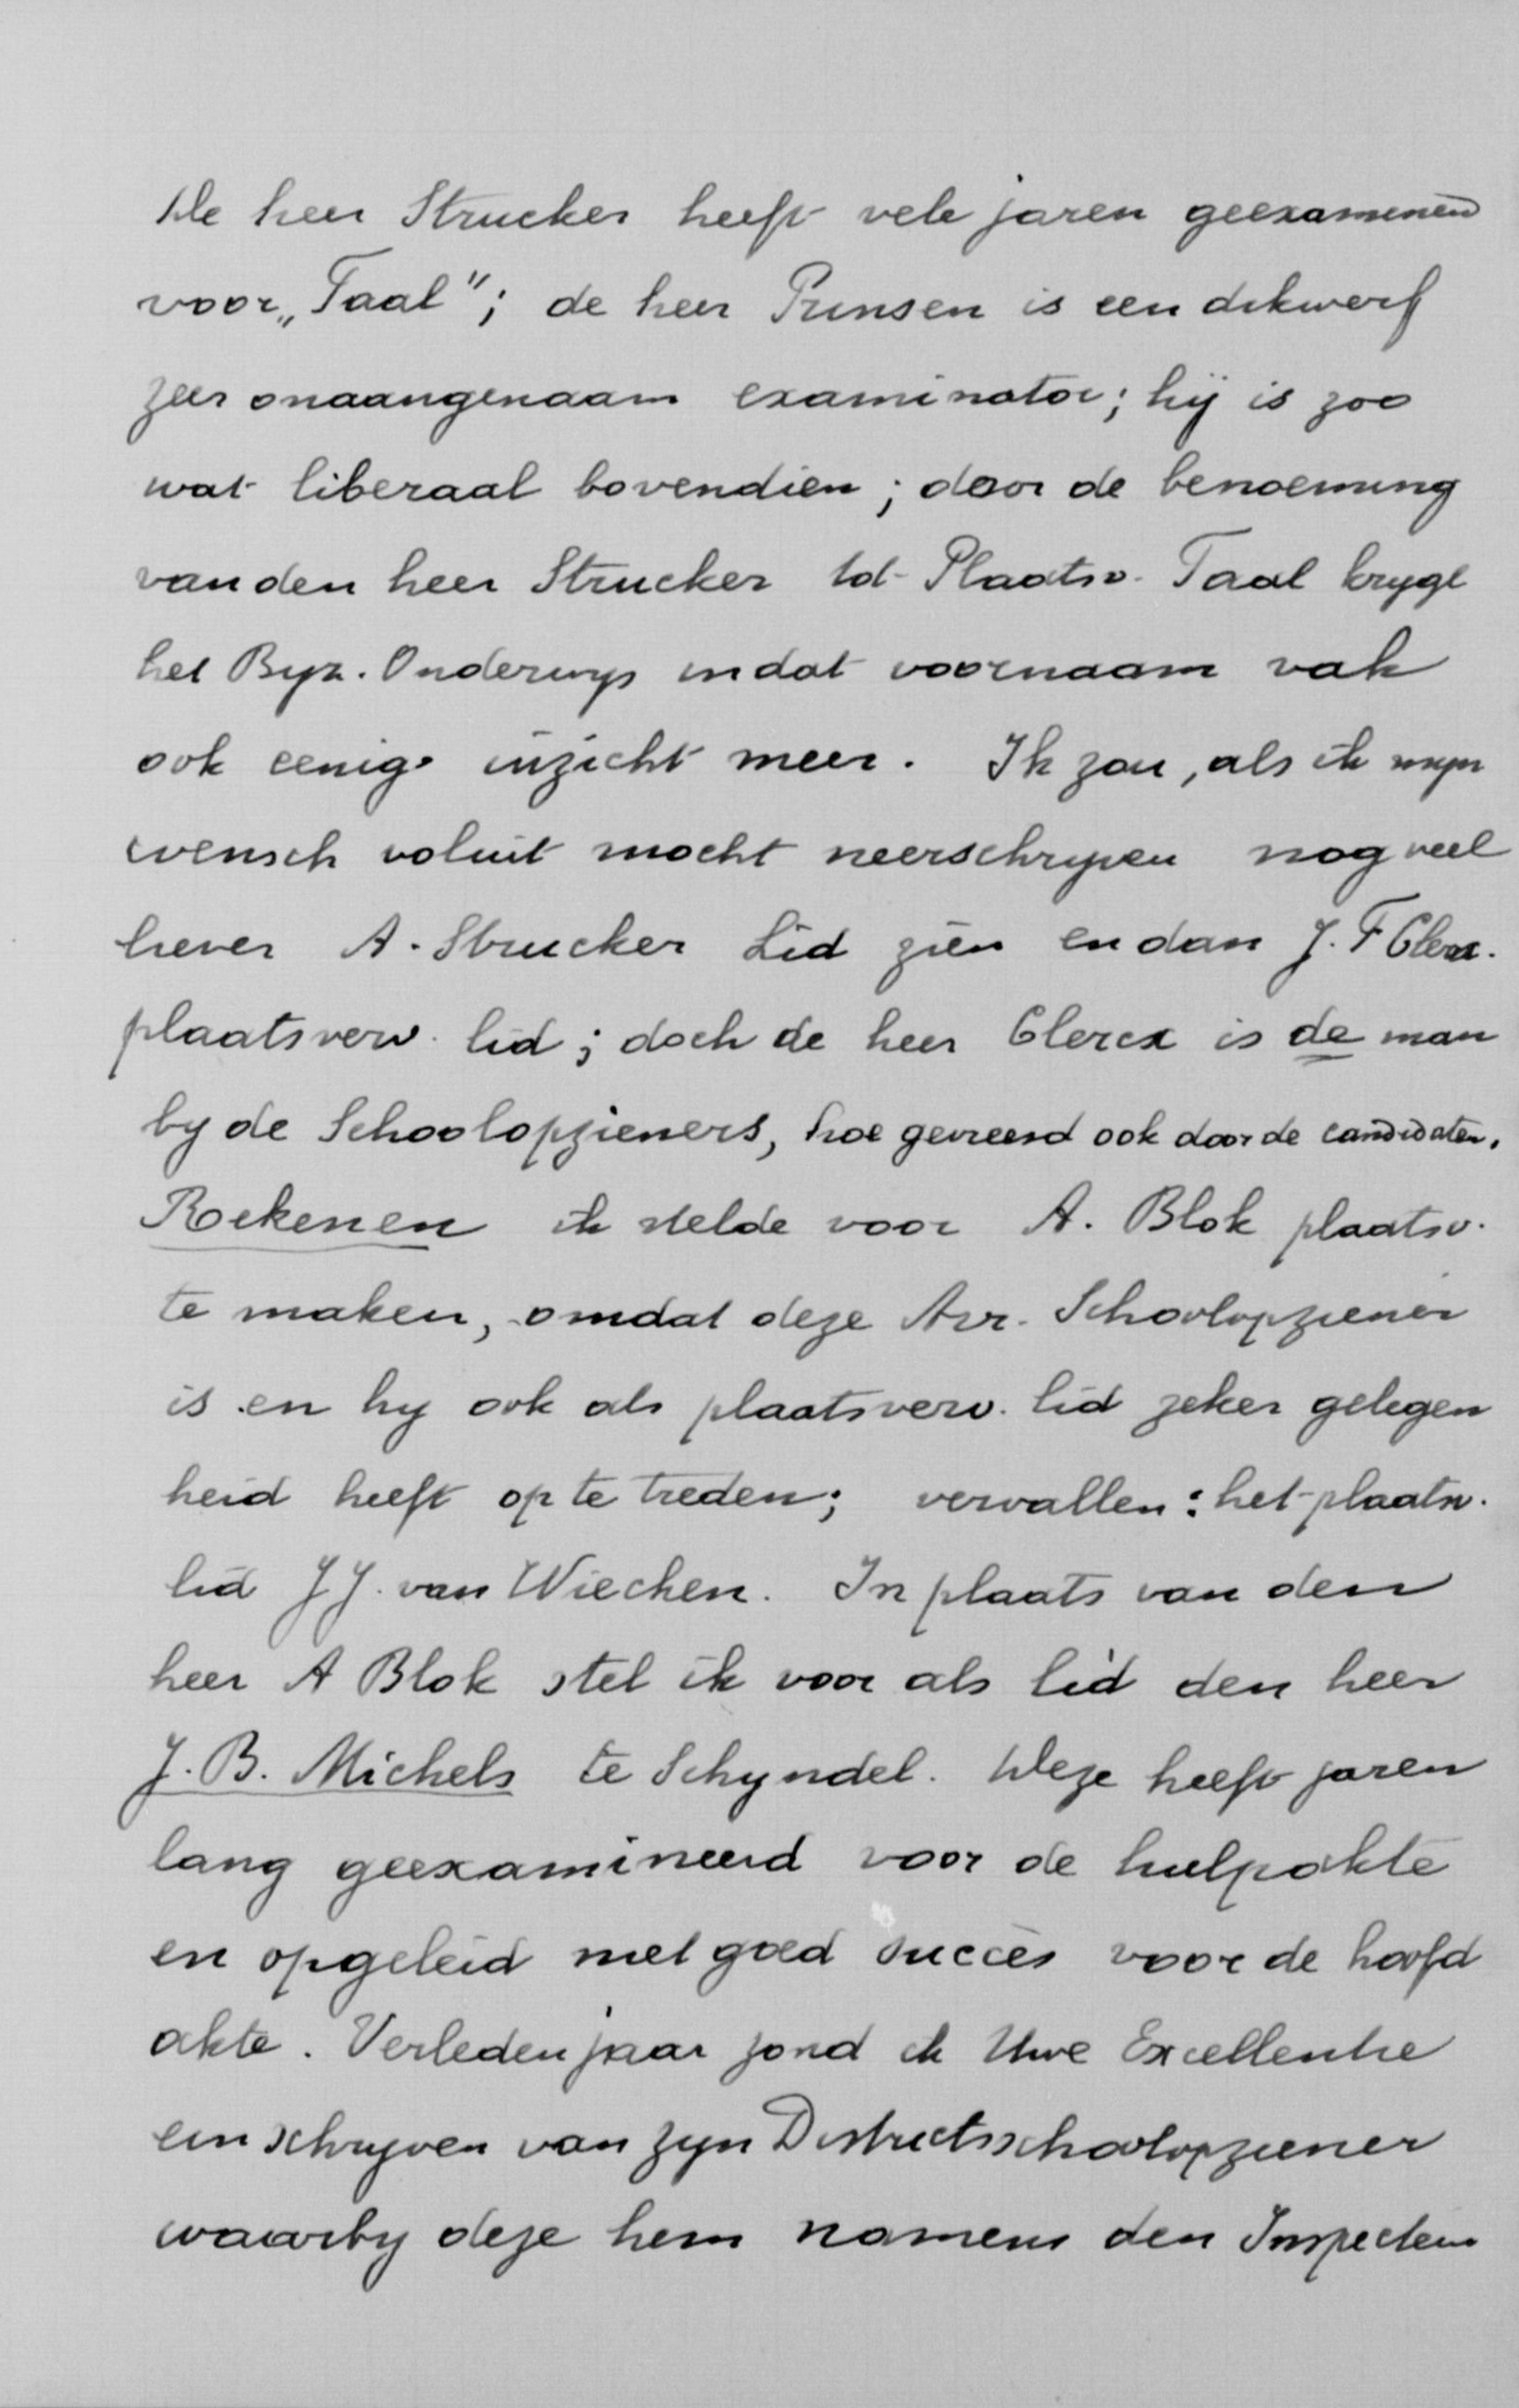 De heer Strucker heeft vele jaren geexamineerd
voor „Taal"; de heer Prinsen is een dikwerf
zeer onaangenaam examinator; hij is zoo
wat liberaal bovendien; door de benoeming
van den heer Strucker tot Plaatsv. Taal krygt
het Byz. Onderwys in dat voornaam vak
ook eenige inzicht meer. Ik zou, als ik myn
wensch voluit mocht neerschryven nog veel
liever A. Strucker Lid zien en dan J. F Clercx.
plaatsverv. lid; doch de heer Clercx is de man
by de Schoolopzieners, hoe gevreesd ook door de candidaten.
Rekenen ik stelde voor A. Blok plaatsv.
te maken, omdat deze Arr. Schoolopziener
is en hy ook als plaatsverv. lid zeker gelegen
heid heeft op te treden; vervallen: het plaatsv.
lid J J. van Wiechen. In plaats van den
heer A Blok stel ik voor als lid den heer
J. B. Michels te Schyndel. Deze heeft jaren
lang geexamineerd voor de hulpakte
en opgeleid met goed succès voor de hoofd
akte. Verleden jaar zond ik Uwe Excellentie
een schryven van zyn Districtsschoolopziener
waarby deze hem namens den Inspecteur